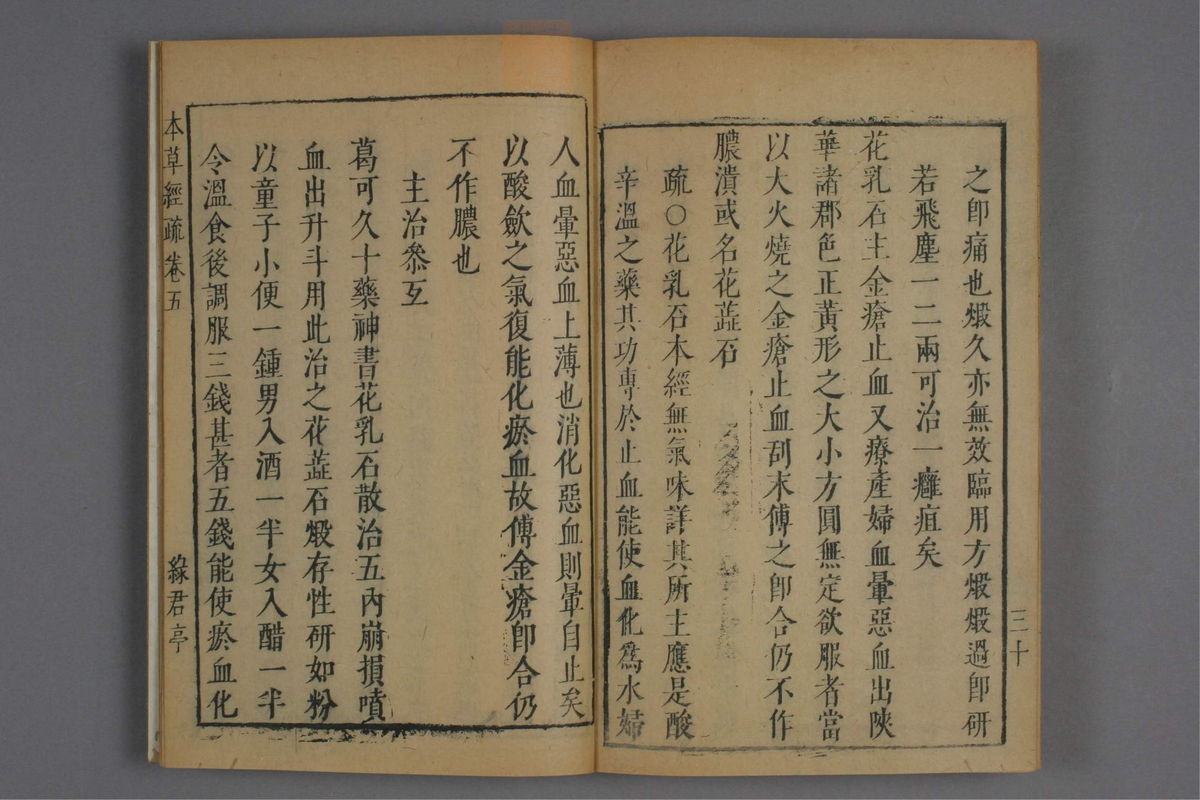 之卽痛也煅久亦無效臨用方煅煅過卽研
若飛塵一二兩可治一癰疽矣
花乳石主金瘡止血又療產婦血暈惡血出陝
華諸郡色正黃形之大小方圓無定欲服者當
以大火燒之金瘡止血刮末傅之卽合仍不作
膿潰或名花蕋石
疏○花乳石本經無氣味詳其所主應是酸
辛溫之藥其功專於止血能使血化爲水婦
三十
人血暈惡血上薄也消化惡血則暈自止矣
以酸斂之氣復能化瘀血故傅金瘡卽合仍
不作膿也
主治叅互
葛可久十藥神書花乳石散治五內崩損噴
血出升斗用此治之花蕋石煅存性研如粉
以童子小便一鍾男入酒一半女入醋一半
令溫食後調服三錢甚者五錢能使瘀血化
本草經疏 卷五 綠君亭